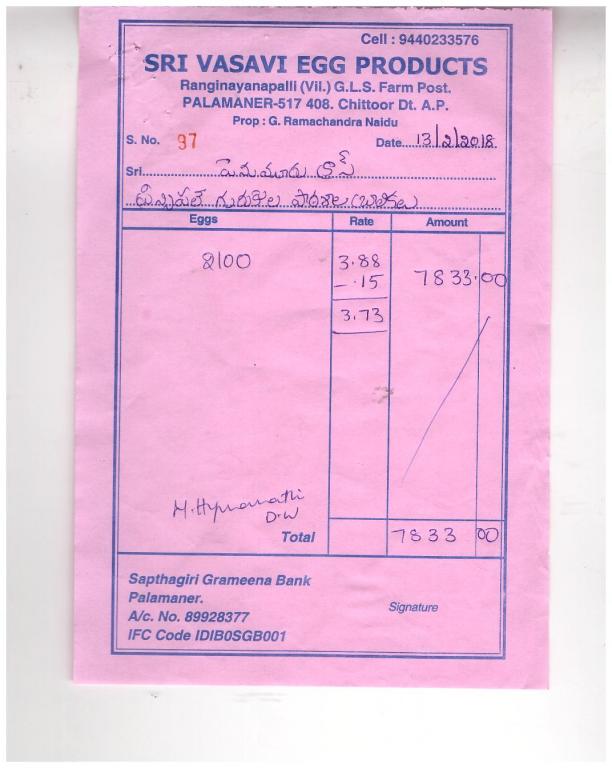 Cell : 9440233576
SRI VASAVI EGG PRODUCTS
Ranginayanapalli (Vil.) G.L.S. Farm Post.
PALAMANER-517 408. Chittoor Dt. A.P.
Prop : G. Ramachandra Naidu
S. No. 97 Date....13/2/2018
Sri
గురుకుల పాఠశాల (బాలికలు
Eggs Rate Amount
2100 3.88 7833.00
- .15
3.73
D.W
Total 7833 00
Sapthagiri Grameena Bank
Palamaner.
Signature
A/c. No. 89928377
IFC Code IDIB0SGB001